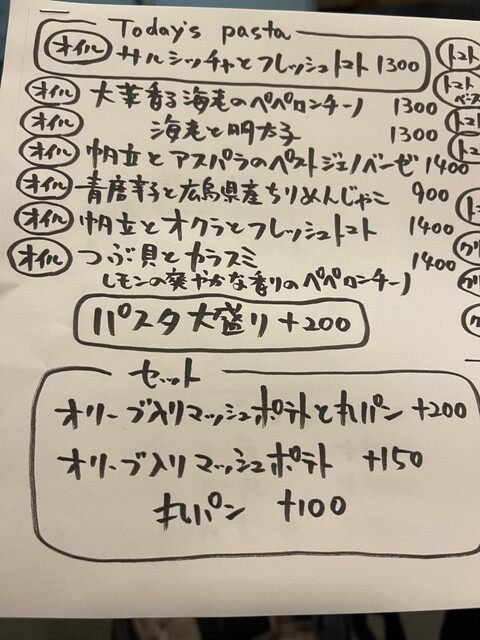 Today's pasta
オイル サルシッチャとフレッシュトマト 1300
オイル 大葉香る海老のペペロンチーノ 1300
オイル 海老と明太子 1300
オイル 帆立とアスパラのペストジェノベーゼ 1400
オイル 青唐辛子と広島県産ちりめんじゃこ 900
オイル 帆立とオクラとフレッシュトマト 1400
オイル つぶ貝とカラスミ 1400
レモンの爽やかな香りのペペロンチーノ
パスタ大盛り +200
セット
オリーブ入りマッシュポテトと丸パン +200
オリーブ入りマッシュポテト +150
丸パン +100